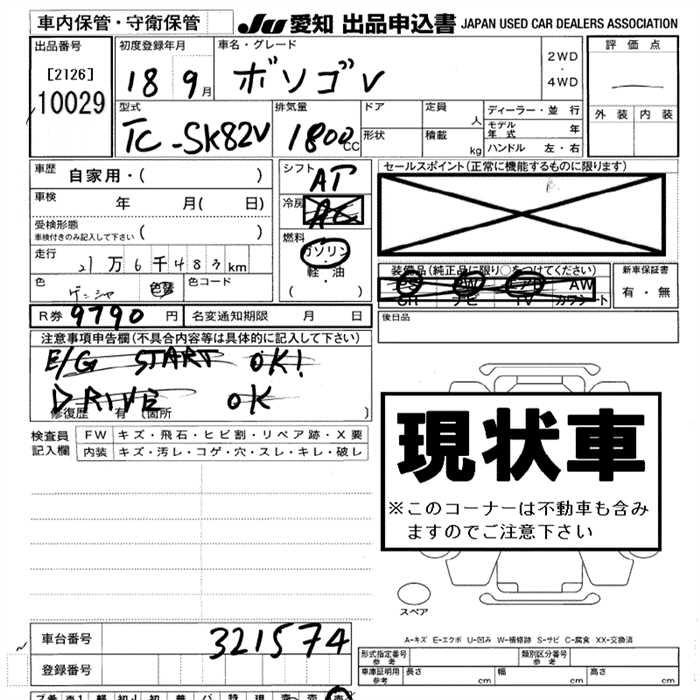 車内保管・守衛保管
JU 愛知 出品申込書 JAPAN USED CAR DEALERS ASSOCIATION
出品番号 初度登録年月 車名・グレード 2WD・4WD 評価点
[2126] 10029 18 9月 ボンゴV
外装 内装
型式 排気量 ドア 定員 人 ディーラー・並行
TC-SK82V 1800cc 形状 積載 kg モデル年式 年
ハンドル 左・右
車歴 自家用・( )
シフト AT
セールスポイント(正常に機能するものに限ります)
車検 年 月( 日)
冷房 AC
受検形態 車検付きのみ記入して下さい ( )
燃料 ガソリン・軽・油 ( )
走行 21万6千483km
装備品(純正品に限り○をつけてください) 新車保証書
PS AW AW
SR ナビ TV カワシート 有・無
色 色替 色コード
R券 9790円 名変通知期限 月 日
後日品
注意事項申告欄(不具合内容等は具体的に記入して下さい)
E/G START OK!
DRIVE OK
修復歴 有(箇所 )
検査員記入欄 FW キズ・飛石・ヒビ割・リペア跡・X要
内装 キズ・汚レ・コゲ・穴・スレ・キレ・破レ
現状車
※このコーナーは不動車も含み
ますのでご注意下さい
スペア
A-キズ E-エクボ U-凹み W-補修跡 S-サビ C-腐食 XX-交換済
車台番号 321574
型式指定番号 参考 類別区分番号 参考
登録番号
車庫証明用 参考 長さ cm 幅 cm 高さ cm